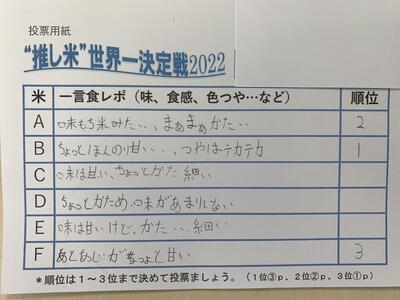 投票用紙
“推し米”世界一決定戦2022
米 一言食レポ（味、食感、色つや…など） 順位
A 味もち米みたい、、まぁまぁかたい、、 2
B ちょっとほんのり甘い、、、つやはテカテカ 1
C 味は甘い、ちょっとかた 細い
D ちょっとかため、味があまりしない
E 味は甘いけど、かた、、、細い
F あとあじがちょっと甘い 3
＊順位は１～３位まで決めて投票ましょう。（１位③ｐ、２位②ｐ、３位①ｐ）